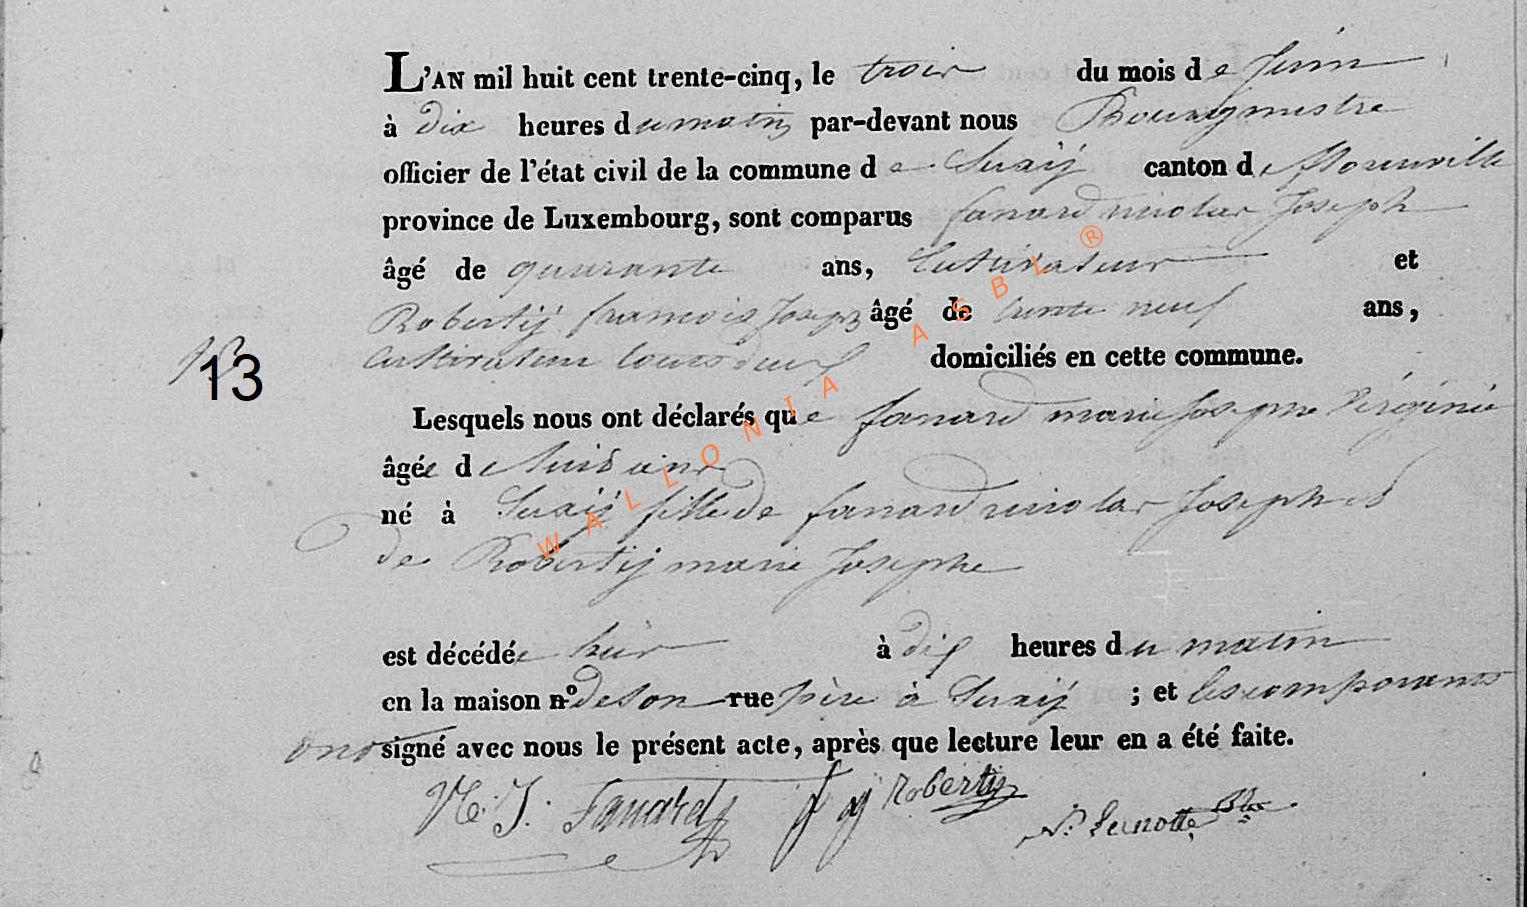 L'AN mil huit cent trente-cinq, le trois du mois de Juin
à dix heures du matin par-devant nous Bourgmestre
officier de l'état civil de la commune de Suxÿ canton de florenville
province de Luxembourg, sont comparus fanard nicolas Joseph
âgé de quarante ans, Cultivateur et
Robertÿ francois Joseph âgé de trente neuf ans,
13
13
Cultivateur tous deux domiciliés en cette commune.
Lesquels nous ont déclarés que fanard marie Josephe Virginie
âgée de huit ans
né à Suxÿ fille de fanard nicolas Joseph et
de Robertÿ marie Josephe
est décédée hier à dix heures du matin
en la maison nº de son rue père à Suxÿ ; et les comparants
ont signé avec nous le présent acte, après que lecture leur en a été faite.
N. J. Fanard f j Roberty
WALLONIA ASBL ®